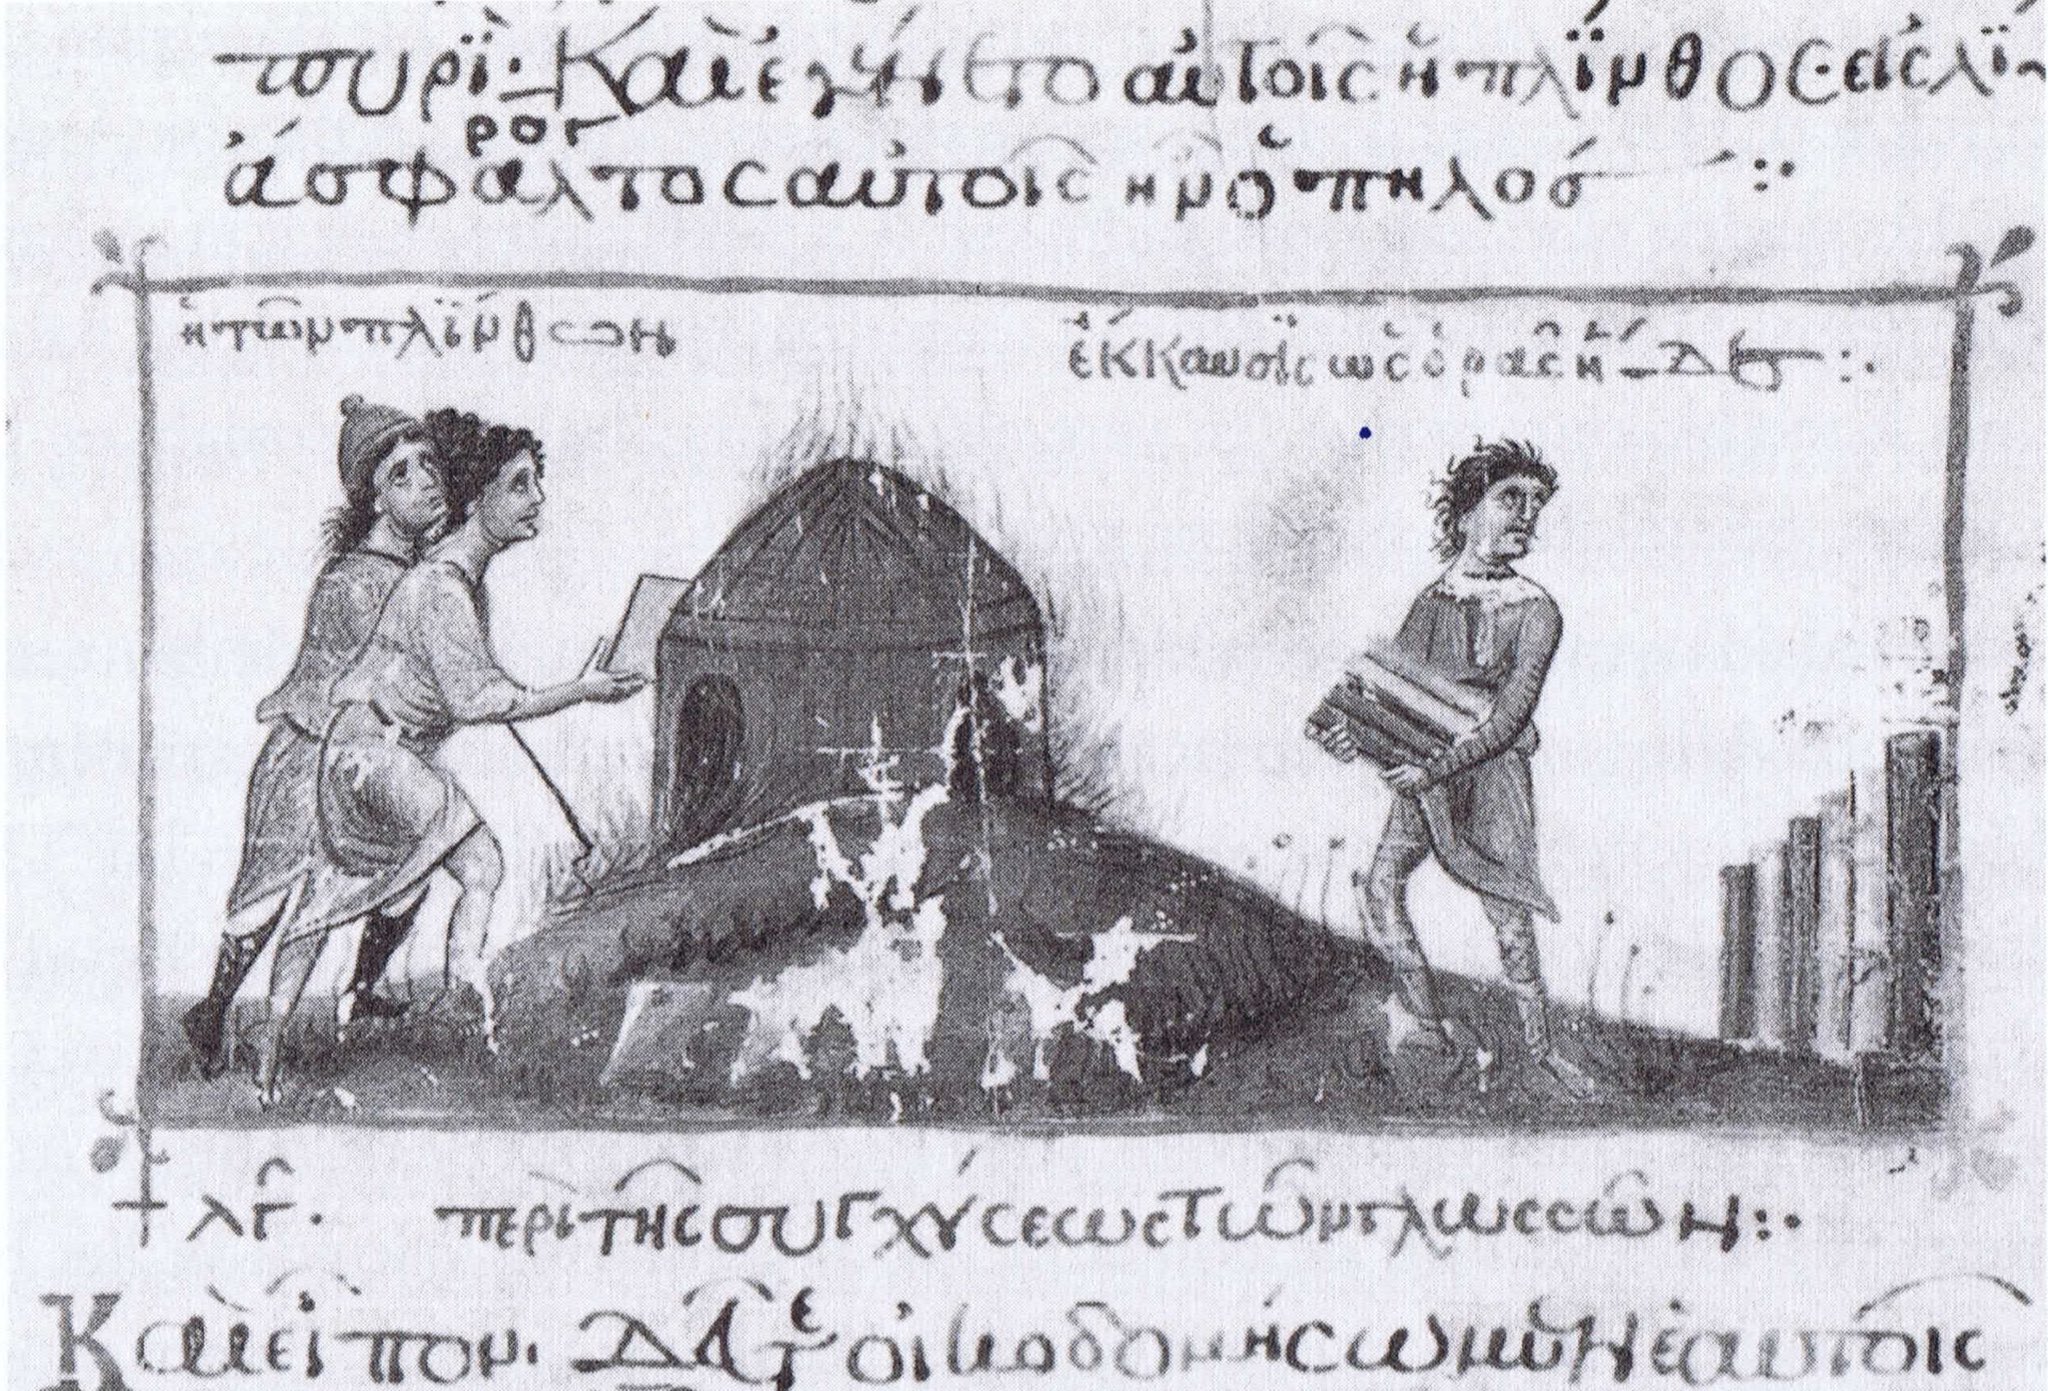 πυρί· Καὶ ἐγένετο αὐτοῖς ἡ πλίνθος εἰς λί-
ρος
ἄσφαλτος αὐτοῖς ἦν ὁ πηλός :·
ἡ τῶν πλίνθων
ἔκκαυσις ὡς ὁρᾶς ἦν
+ λγ. περὶ τῆς συγχύσεως τῶν γλωσσῶν :·
Καὶ εἶπον· Δεῦτε οἰκοδομήσωμεν ἑαυτοῖς